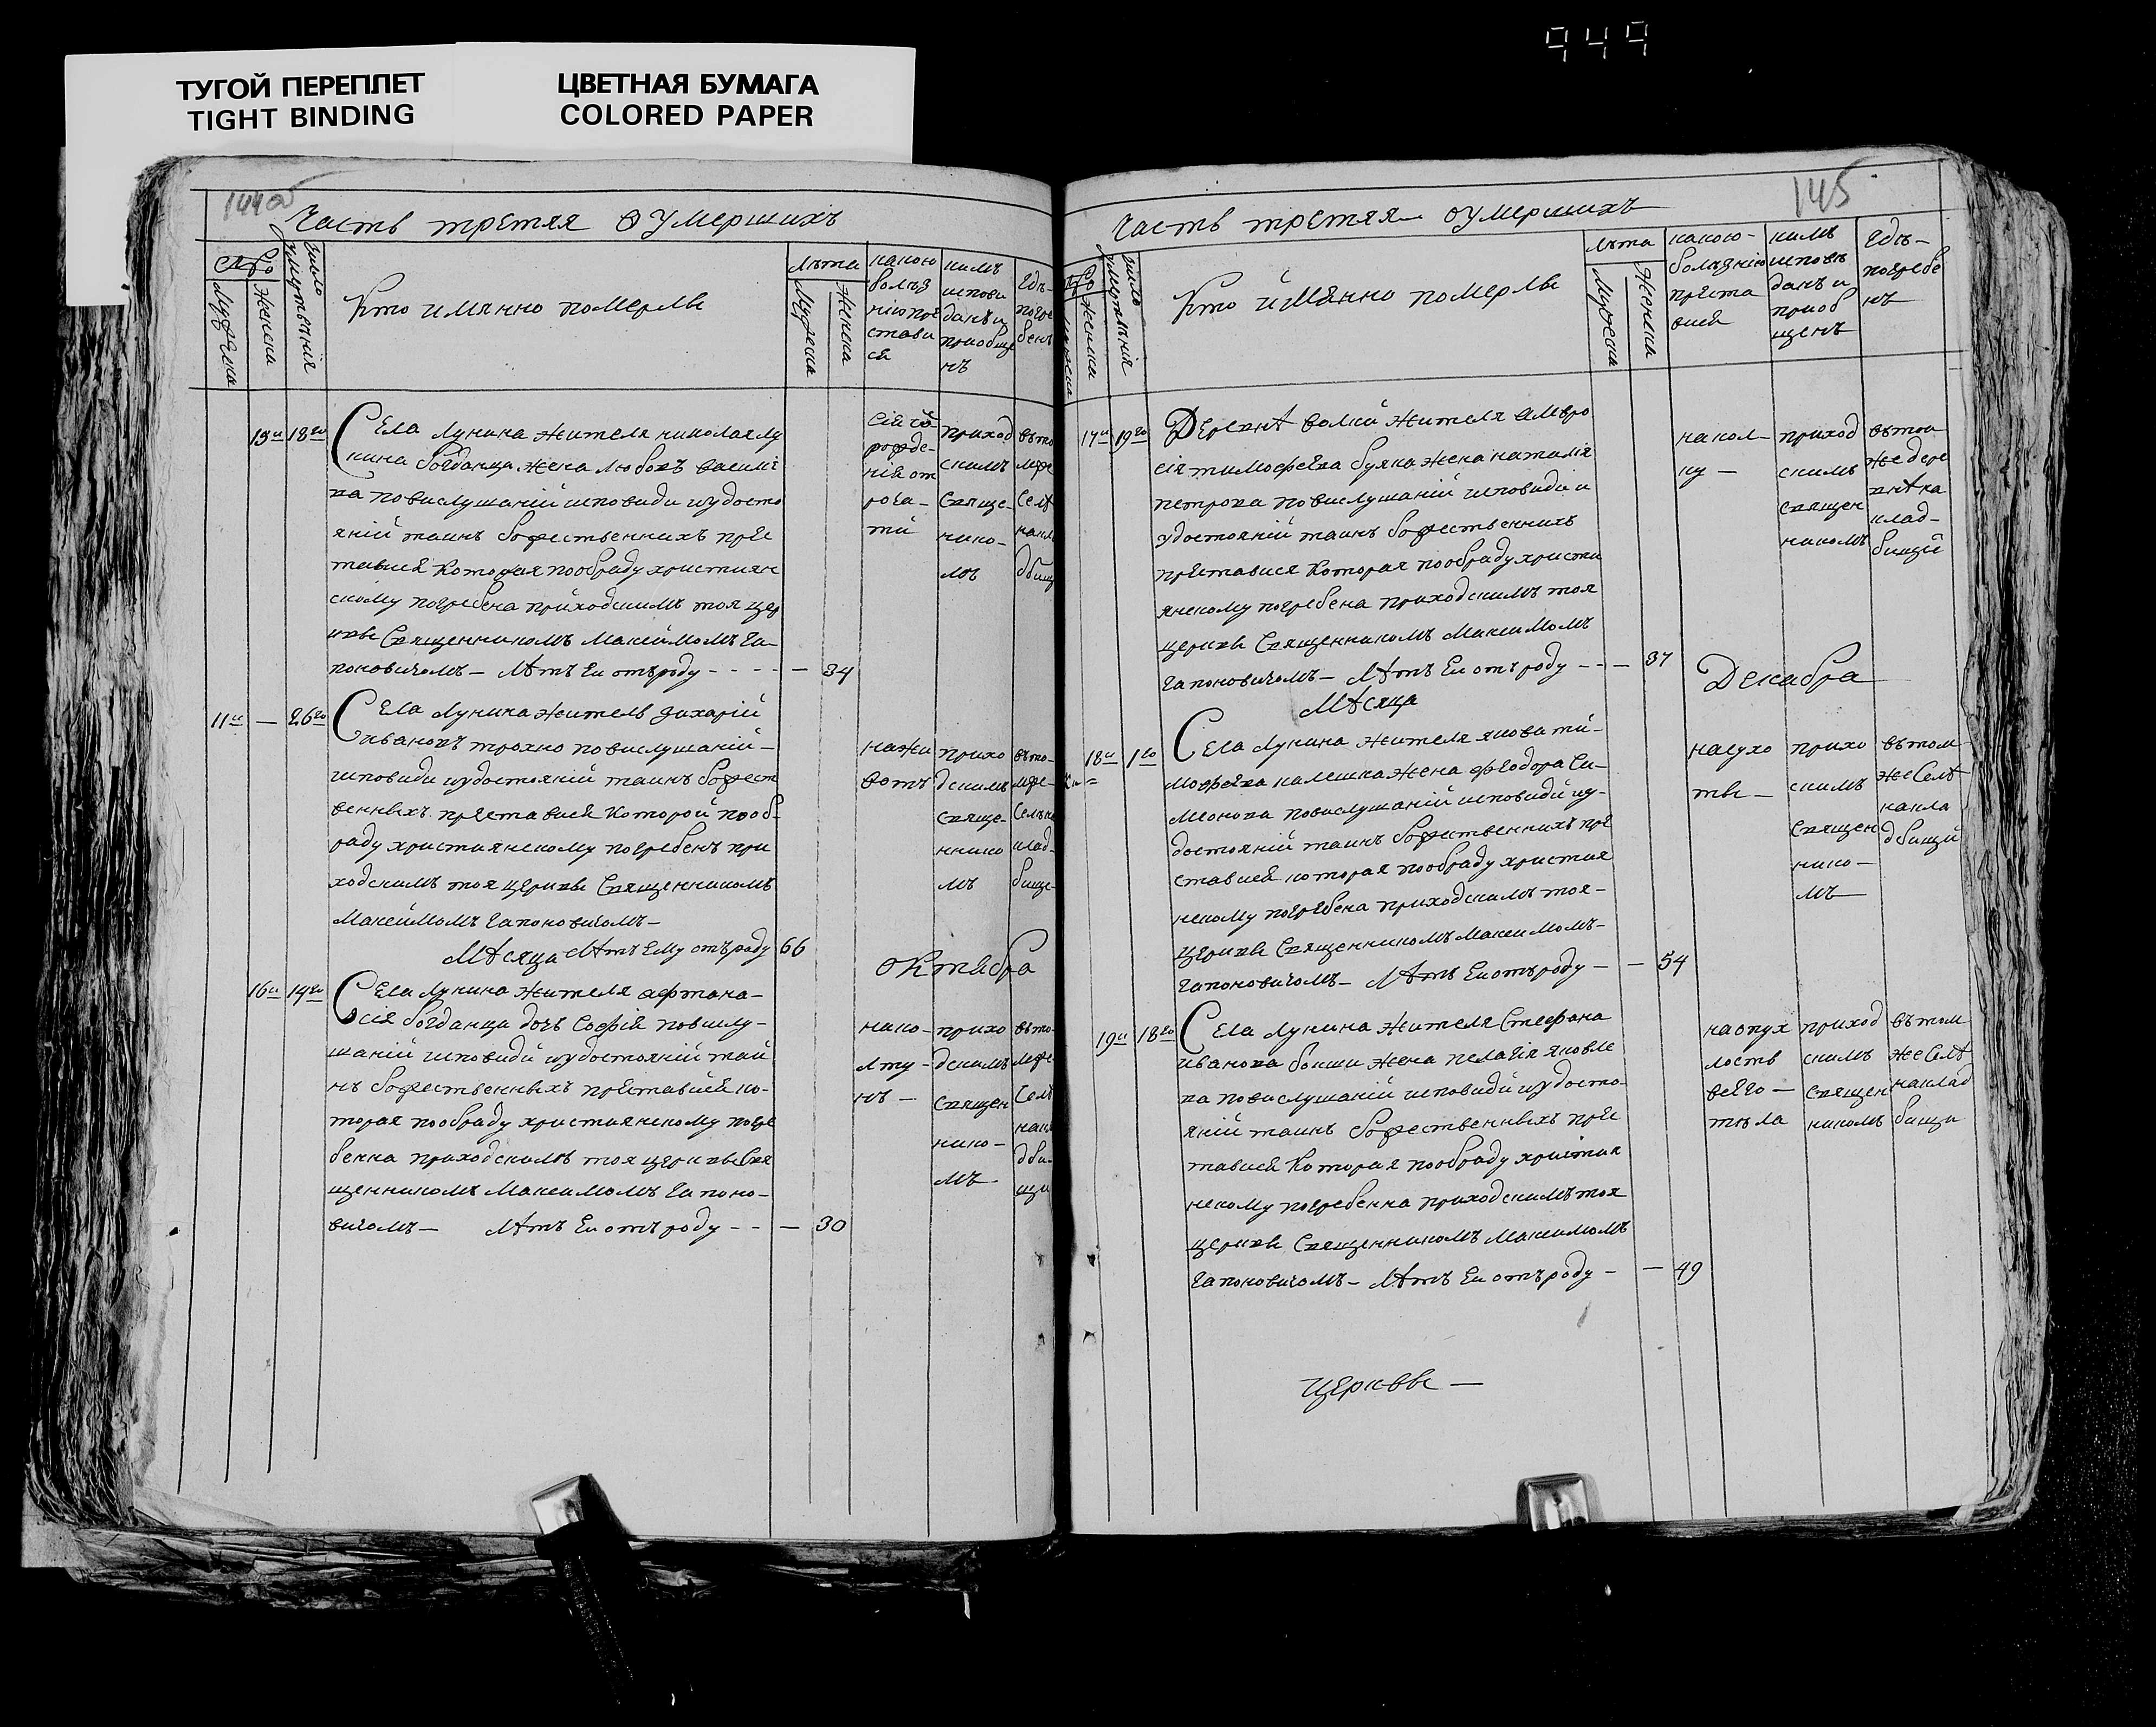 ТУГОЙ ПЕРЕПЛЕТ
TIGHT BINDING
ЦВЕТНАЯ БУМАГА
COLORED PAPER
949
144об
Часть третяя О умершихъ
Число умертвѣнія
Мужеска
Женска
Кто имянно померлъ
лѣта
Мужеска
Женска
какою
болѣз
нію пре
стави
ся
кимъ
испови
данъ и
приобще
нъ
гдѣ
погре
бенъ
15и
18го
Села Лунина жителя николая лу
кина богданца жена любовъ василіе
ва повислушаній исповиди иудосто
яній таинъ божественнихъ прес
тавися которая пообраду християн
скому погребена приходскимъ тоя цер
кве Священникомъ Максимомъ Га-
поновичомъ — Лѣтъ Еи отъроду - - - -
— 34
рожде-
нія от
роча-
ти
приход
скимъ
Свяще-
нико-
мъ
въто
мже
Селѣ
накла
дбищ
11и — 26го
Села Лунина житель захарій
ивановъ трохно повислушаній —
исповиди иудостояній таинъ божест
венныхъ преставися которой пооб-
раду християнскому погребенъ при
ходскимъ тоя церкве Священникомъ
Максимомъ Гапоновичомъ —
Лѣтъ Ему отъроду 66
нажи
вотъ
прихо
дскимъ
Свяще-
ннико
мъ
въто-
мже-
Селѣна
клад-
бище-
Мѣсяца октября
16и
14го
Села Лунина жителя афтана-
сія богданца дочь Софія повислу-
шаній исповиди иудостояній таи
нъ божественныхъ преставися ко-
торая пообраду християнскому погре
бенна приходскимъ тоя церкве Свя
щенникомъ Максимомъ Гапоно-
вичомъ — Лѣтъ Еи отъ роду - - -
— 30
нако-
лту-
нъ —
прихо
дскимъ
Священ
нико-
мъ
въто
мже
Селѣ
накла
дби-
щи
145
Часть третяя о умершихъ
Число умертвѣнія
Женска
Кто имянно померлъ
лѣта
Мужеска
Женска
какою-
болѣзнію
преста
вися
кимъ
исповѣ
данъ и
приоб
щенъ
гдѣ-
погребе
нъ
17и
19го
Деревнѣ волки жителя амвро
сія тимофѣева буяка жена наталия
петрова повислушаній исповиди и
удостояній таинъ божественнихъ
преставися которая пообраду христи
янскому погребена приходскимъ тоя
церкве Священникомъ Максимомъ
Гапоновичомъ — Лѣтъ Еи отъ роду - - —
37
накол-
ку —
приход
скимъ
Священ
никомъ
вътои
же дере
внѣ на
клад-
бищи
Мѣсяца Декабра
18и
1го
Села Лунина жителя якова ти-
мофѣева калешка жена феодора Си-
меонова повислушаній исповиди иу-
достояній таинъ божественнихъ пре
ставися которая пообраду християн
нскому погребена приходскимъ тоя-
церкве Священникомъ Максимомъ-
Гапоновичомъ — Лѣтъ Еи отъроду —
— 54
насухо
тве —
прихо
скимъ
Священ
нико —
мъ
вътом
же Селѣ
накла
дбищи
19и
18го
Села Лунина жителя Стефана
иванова бокши жена пелагія яковле
ва повислушаній исповиди иудосто-
яній таинъ божественныхъ прес
тавися которая пообраду християн
нскому погребенна приходскимъ тоя
церкве Священникомъ Максимомъ
Гапоновичомъ — Лѣтъ Еи отъ роду —
— 49
наопух
лость
всего —
тѣла
приход
скимъ
Священ
никомъ
вътом
же Селѣ
наклад
бищи
церкве —